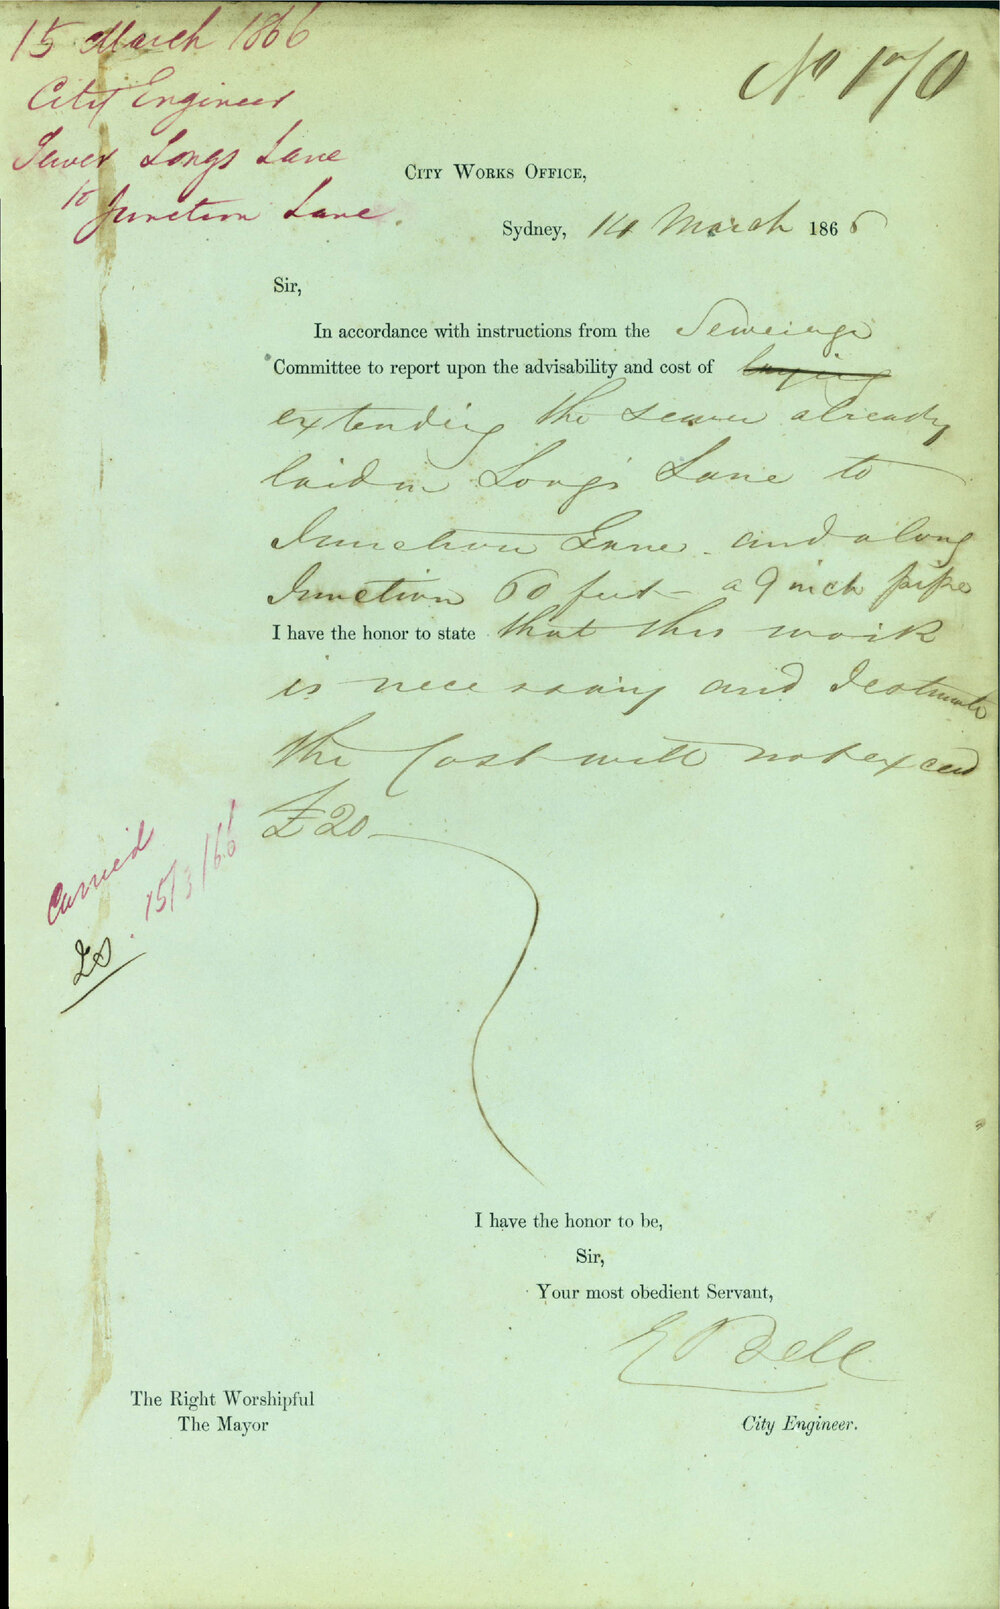 15 March 1866
City Engineer
Sewer Longs Lane
to Junction Lane.
No 170
City Works Office,
Sydney, 14 March 1866
Sir,
In accordance with instructions from the Sewerage
Committee to report upon the advisability and cost of laying
extending the sewer already
laid in Long's Lane to
Junction Lane - and along
Junction 60 feet - a 9 inch pipe
I have the honor to state that this work
is necessary and I estimate
the Cost will not exceed
£20
Carried
15/3/66
I have the honor to be,
Sir,
Your most obedient Servant,
E Bell
The Right Worshipful
The Mayor
City Engineer.